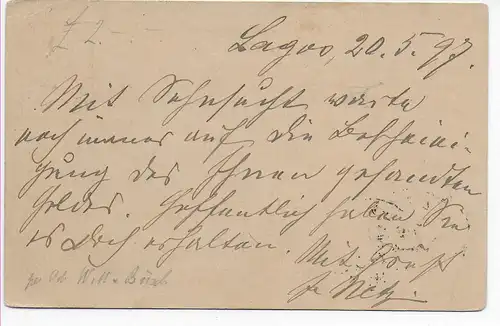 £ 2.-.-
Lagos, 20.5.97.
Mit Sehnsucht warte
noch immer auf die Bescheini-
gung des Ihnen gesandten
Geldes. Hoffentlich haben Sie
es doch erhalten.
Mit Gruß